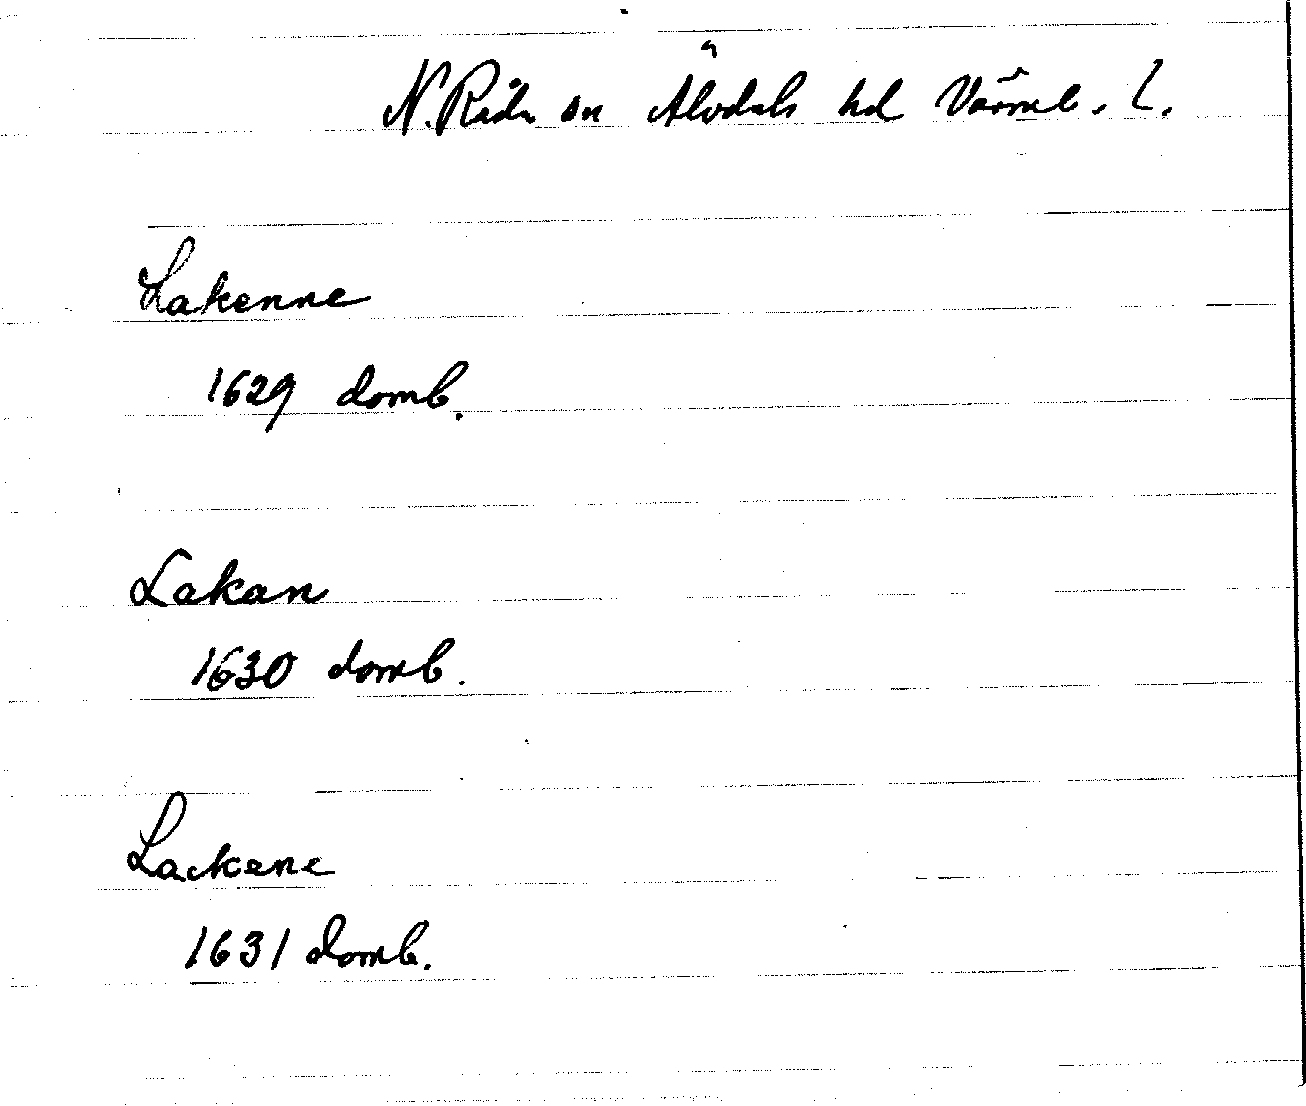 N. Råda sn Älvdals hd Värml. L.
Lakenne
1629 domb.
Lakan
1630 domb.
Lackene
1631 domb.